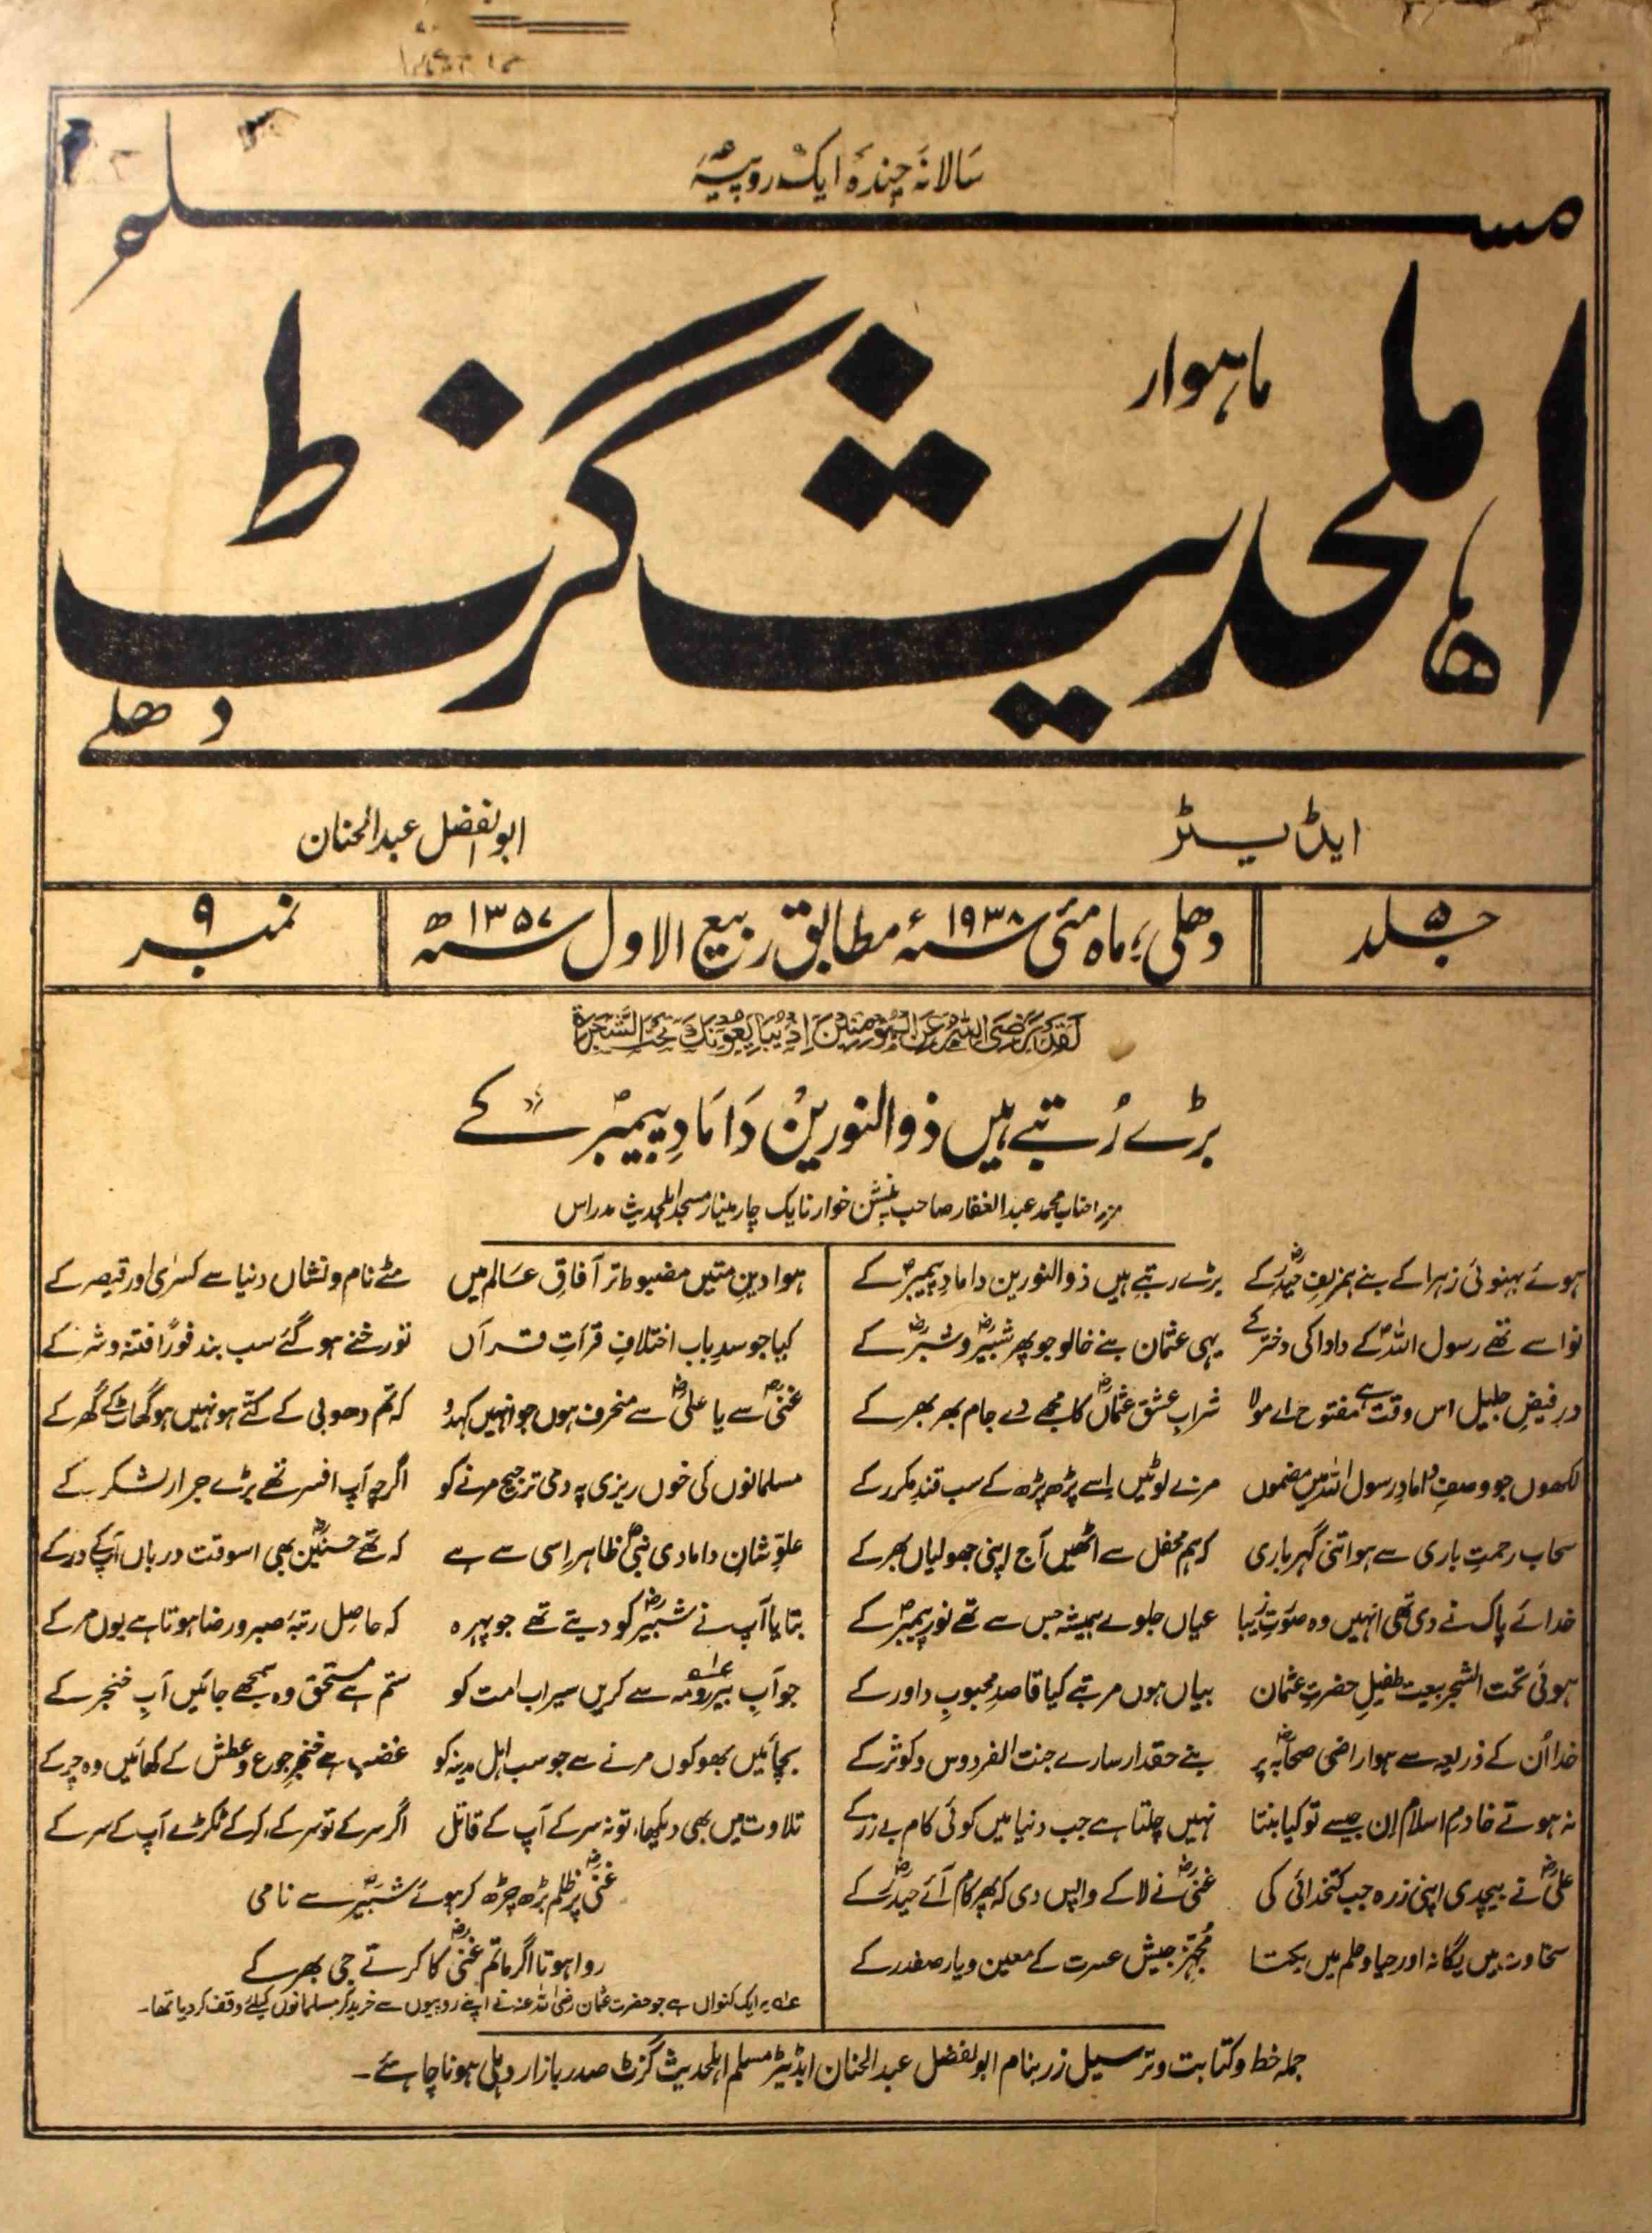 سالانہ چندہ ایک روپیہ
مسلم
ماہوار
اہلحدیث گزٹ
دھلی
ایڈیٹر
ابوالفضل عبدالحنان
جلد ۵
دھلی، ماہ مئی ۱۹۳۸ء مطابق ربیع الاول سنہ ۱۳۵۷ھ
نمبر ۹
لَقَدْ رَضِيَ اللَّهُ عَنِ الْمُؤْمِنِينَ إِذْ يُبَايِعُونَكَ تَحْتَ الشَّجَرَةِ
بڑے رُتبے ہیں ذوالنورینؓ دَامَادِ پیمبرؐ کے
جناب محمد عبدالغفار صاحب پنشن خوار نایک چار مینار مسجد اہلحدیث مدراس
ہوئے بہنوئی زہرا کے بنے ہمزلف حیدرؓ کے بڑے رتبے ہیں ذوالنورین داماد پیمبرؐ کے
نواسے تھے رسول اللہؐ کے دادا کی دختر کے یہی عثمان بنے خالو جو پھر شبیرؓ و شبرؓ کے
درِ فیضِ جلیل اس وقت ہے مفتوح اے مولا شرابِ عشق عثمانؓ کا مجھے دے جام بھر بھر کے
لکھوں جو وصفِ دامادِ رسول اللہ میں مضموں مزے لوٹیں اِسے پڑھ پڑھ کے سب قندِ مکرر کے
سحاب رحمتِ باری سے ہو اتنی گہرباری کہ ہم محفل سے اٹھیں آج اپنی جھولیاں بھر کے
خدائے پاک نے دی تھی انہیں وہ صورتِ زیبا عیاں جلوے ہمیشہ جس سے تھے نورِ پیمبرؐ کے
ہوئی تحت الشجر بیعت طفیلِ حضرتِ عثمان بیاں ہوں مرتبے کیا قاصدِ محبوبِ داور کے
خدا اُن کے ذریعہ سے ہوا راضی صحابہؓ پر بنے حقدار سارے جنت الفردوس و کوثر کے
نہ ہوتے خادمِ اسلام اِن جیسے تو کیا بنتا نہیں چلتا ہے جب دنیا میں کوئی کام بے زر کے
علیؓ نے بیچدی اپنی زرہ جب کتخدائی کی غنیؓ نے لا کے واپس دی کہ پھر کام آئے حیدرؓ کے
سخاوت میں یگانہ اور حیا و حلم میں یکتا مُجہز جیش عسرت کے معین و یار صفدر کے
ہوا دینِ متیں مضبوط تر آفاقِ عالم میں مٹے نام و نشاں دنیا سے کسریٰ اور قیصر کے
کیا جو سدِ باب اختلافِ قرآتِ قرآں تو رخنے ہو گئے سب بند فوراً فتنہ و شر کے
غنیؓ سے یا علیؓ سے منحرف ہوں جو انہیں کہدو کہ تم دھوبی کے کتے ہو نہیں ہو گھاٹ کے گھر کے
مسلمانوں کی خوں ریزی پہ دی ترجیح مرنے کو اگرچہ آپ افسر تھے بڑے جرار لشکر کے
علوِ شان دامادی نبیؐ ظاہر اِسی سے ہے کہ تھے حسنینؓ بھی اسوقت درباں آپکے در کے
بتایا آپ نے شبیرؓ کو دیتے تھے جو پہرہ کہ حاصل رتبۂ صبر و رضا ہوتا ہے یوں مر کے
جو آبِ بیررومہ سے کریں سیراب امت کو ستم ہے مستحق وہ سمجھے جائیں آبِ خنجر کے
بچائیں بھوکوں مرنے سے جو سب اہل مدینہ کو غضب ہے خنجر جوع و عطش کے کھائیں وہ چرکے
تلاوت میں بھی دیکھا، تو نہ سرکے آپ کے قاتل اگر سرکے تو سرکے، کر کے ٹکڑے آپ کے سر کے
غنیؓ پر ظلم بڑھ چڑھ کر ہوئے شبیرؓ سے نامی
روا ہوتا اگر ماتم غنیؓ کا کرتے جی بھر کے
عہ یہ ایک کنواں ہے جو حضرت عثمان رضی اللہ عنہ نے اپنے روپیوں سے خرید کر مسلمانوں کیلئے وقف کر دیا تھا۔
جملہ خط و کتابت و ترسیل زر بنام ابوالفضل عبدالحنان ایڈیٹر مسلم اہلحدیث گزٹ صدر بازار دہلی ہونا چاہئے۔